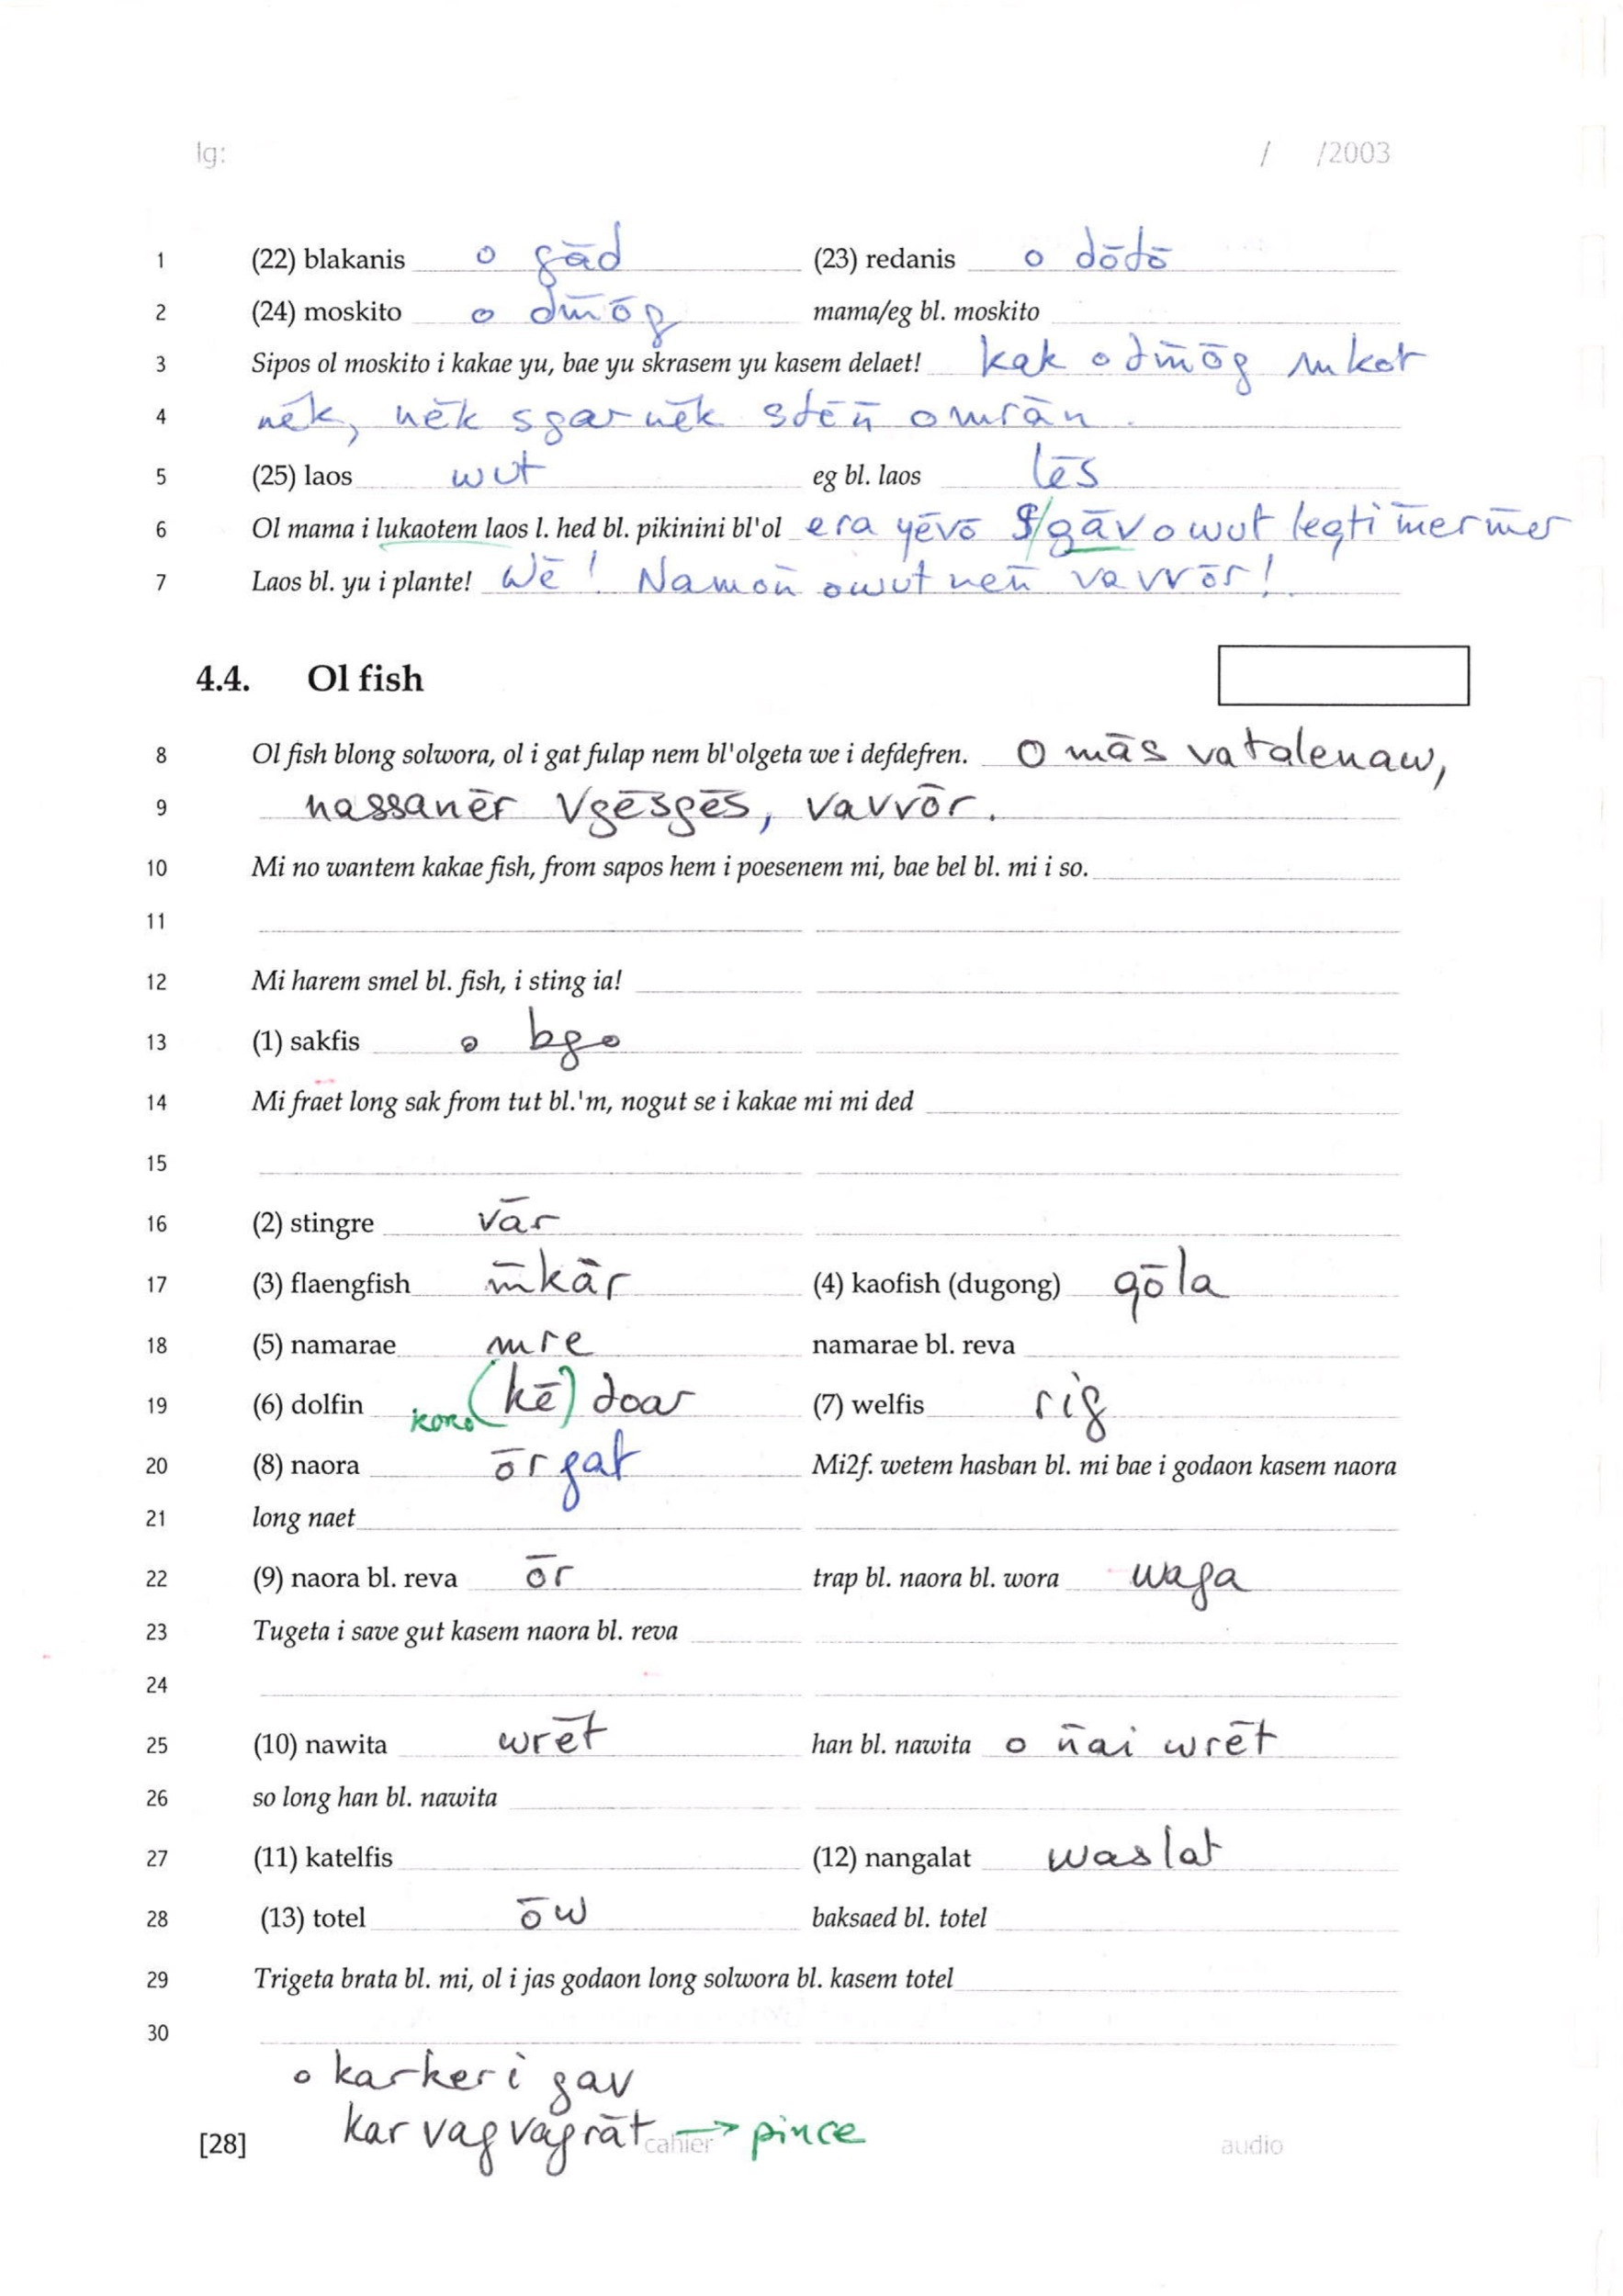 lg: / /2003
1 (22) blakanis o gād (23) redanis o dōdō
2 (24) moskito o dm̄ōg mama/eg bl. moskito
3 Sipos ol moskito i kakae yu, bae yu skrasem yu kasem delaet! o dm̄ōg
4 nēk, nēk sgar nēk stēn̄ o mrān.
5 (25) laos wut eg bl. laos lēs
6 Ol mama i lukaotem laos l. hed bl. pikinini bl'ol era yēvō gāv o wut
7 Laos bl. yu i plante! Wē! Namon̄ o wut nen̄ va vvōr!
4.4. Ol fish
8 Ol fish blong solwora, ol i gat fulap nem bl'olgeta we i defdefren. O mās va talenaw,
9 nassanēr vgēsgēs, vavvōr.
10 Mi no wantem kakae fish, from sapos hem i poesenem mi, bae bel bl. mi i so.
11
12 Mi harem smel bl. fish, i sting ia!
13 (1) sakfis o bgo
14 Mi fraet long sak from tut bl.'m, nogut se i kakae mi mi ded
15
16 (2) stingre vār
17 (3) flaengfish m̄kār (4) kaofish (dugong) qōla
18 (5) namarae mre namarae bl. reva
19 (6) dolfin (kē) doar (7) welfis rig
20 (8) naora ōrgat Mi2f. wetem hasban bl. mi bae i godaon kasem naora
21 long naet
22 (9) naora bl. reva ōr trap bl. naora bl. wora waga
23 Tugeta i save gut kasem naora bl. reva
24
25 (10) nawita wrēt han bl. nawita o n̄ai wrēt
26 so long han bl. nawita
27 (11) katelfis (12) nangalat waslat
28 (13) totel ōw baksaed bl. totel
29 Trigeta brata bl. mi, ol i jas godaon long solwora bl. kasem totel
30
o karkeri gav
kar vagvagrāt → pince
[28] cahier audio